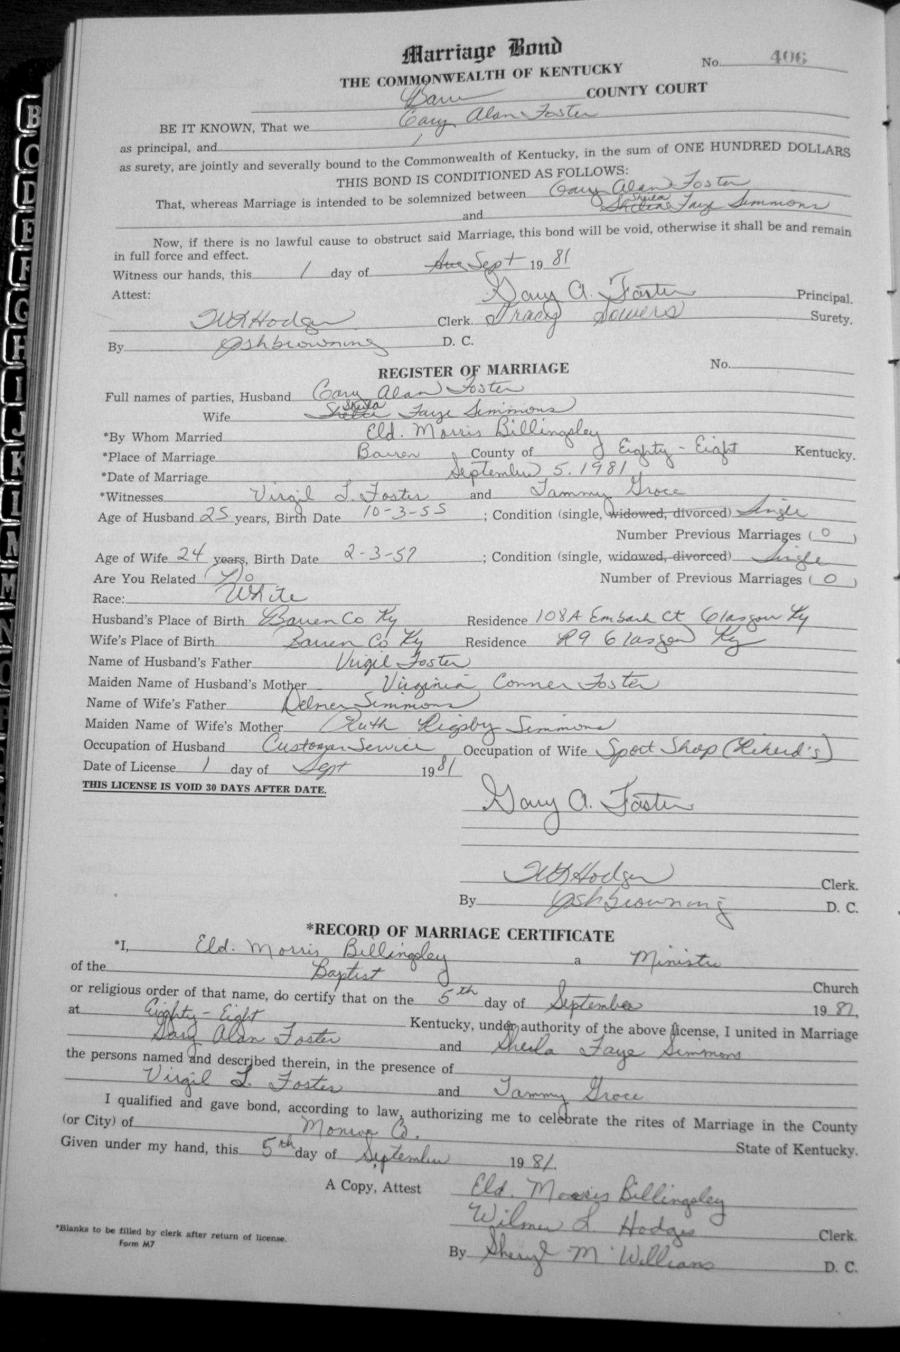 Marriage Bond
No. 406
THE COMMONWEALTH OF KENTUCKY
Barren COUNTY COURT
BE IT KNOWN, That we Gary Alan Foster
as principal, and
as surety, are jointly and severally bound to the Commonwealth of Kentucky, in the sum of ONE HUNDRED DOLLARS
THIS BOND IS CONDITIONED AS FOLLOWS:
That, whereas Marriage is intended to be solemnized between Gary Alan Foster
and Sheila Faye Simmons
Now, if there is no lawful cause to obstruct said Marriage, this bond will be void, otherwise it shall be and remain
in full force and effect.
Witness our hands, this 1 day of Sept 19 81
Attest: Gary A. Foster Principal.
W L Hodges Clerk. Tracy Sowers Surety.
By Browning D. C.
REGISTER OF MARRIAGE No.
Full names of parties, Husband Gary Alan Foster
Wife Sheila Faye Simmons
*By Whom Married Eld. Morris Billingsley
*Place of Marriage Barren County of Eighty-Eight Kentucky.
*Date of Marriage September 5, 1981
*Witnesses Virgil L. Foster and Tammy Groce
Age of Husband 25 years, Birth Date 10-3-55 ; Condition (single, widowed, divorced) Single
Number Previous Marriages ( 0 )
Age of Wife 24 years, Birth Date 2-3-57 ; Condition (single, widowed, divorced) Single
Are You Related No Number of Previous Marriages ( 0 )
Race: White
Husband's Place of Birth Barren Co Ky Residence 108A Embark Ct Glasgow Ky
Wife's Place of Birth Barren Co Ky Residence R9 Glasgow Ky
Name of Husband's Father Virgil Foster
Maiden Name of Husband's Mother Virginia Conner Foster
Name of Wife's Father Delmer Simmons
Maiden Name of Wife's Mother Ruth Rigsby Simmons
Occupation of Husband Customer Service Occupation of Wife Sport Shop
Date of License 1 day of Sept 1981
THIS LICENSE IS VOID 30 DAYS AFTER DATE.
Gary A. Foster
W L Hodges Clerk.
By Browning D. C.
*RECORD OF MARRIAGE CERTIFICATE
*I, Eld. Morris Billingsley a Minister
of the Baptist Church
or religious order of that name, do certify that on the 5th day of September 1981,
at Eighty-Eight Kentucky, under authority of the above license, I united in Marriage
Gary Alan Foster and Sheila Faye Simmons
the persons named and described therein, in the presence of
Virgil L. Foster and Tammy Groce
I qualified and gave bond, according to law, authorizing me to celebrate the rites of Marriage in the County
(or City) of Monroe Co. State of Kentucky.
Given under my hand, this 5th day of September 1981.
A Copy, Attest Eld. Morris Billingsley
Wilmer L Hodges Clerk.
By Sheryl McWilliams D. C.
*Blanks to be filled by clerk after return of license.
Form M7
B
C
D
E
F
G
H
I
J
K
L
M
N
O